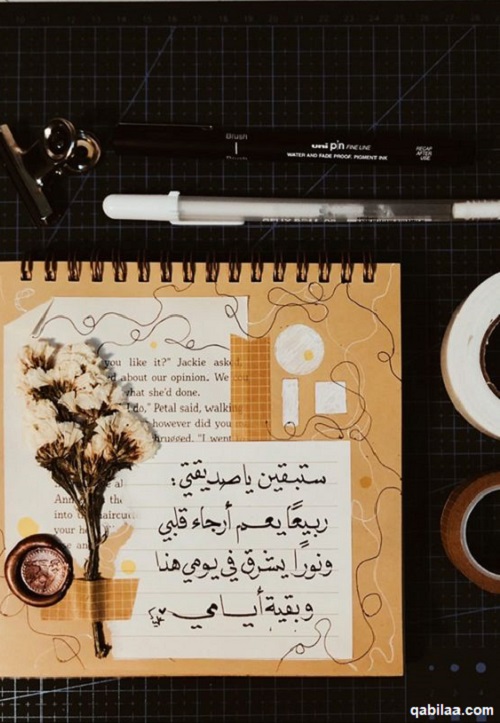 Brush
uni pin FINE LINE
WATER AND FADE PROOF, PIGMENT INK
RECAP
AFTER
USE
you like it?" Jackie asked
d about our opinion. We
what she'd done.
do," Petal said, walking
however did you
shrugged. "I went
ستبقين يا صديقتي:
ربيعًا يعم أرجاء قلبي
ونورًا يشرق في يومي هذا
وبقية أيامي
qabilaa.com